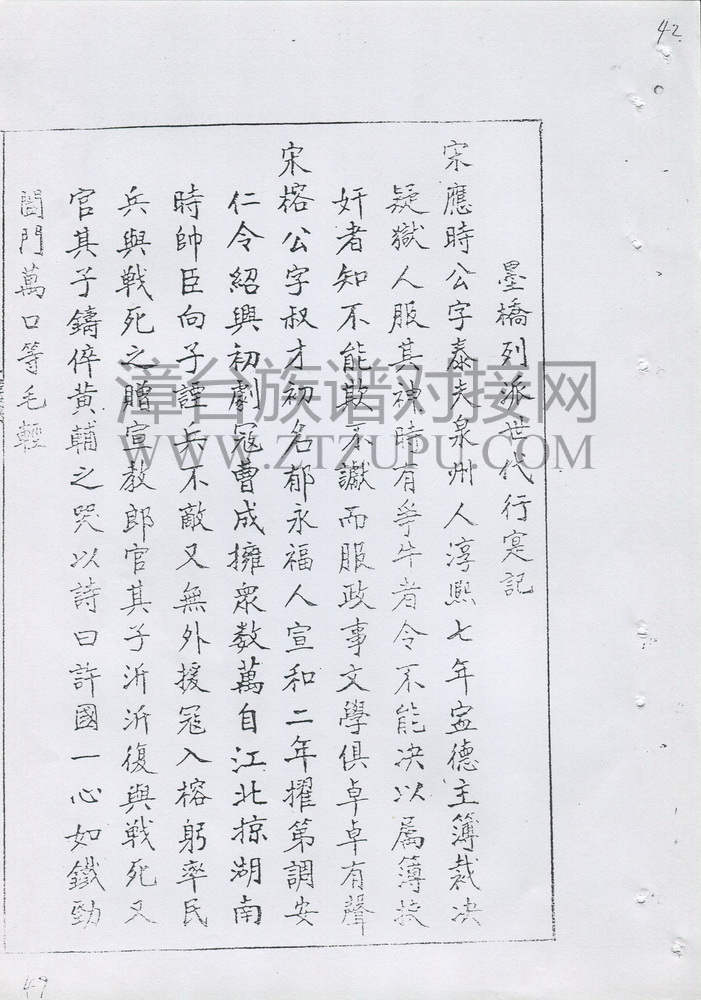 42
墨橋列派世代行寔記
宋應時公字泰夫泉州人淳熙七年寍德主簿裁决
疑獄人服其神時有爭牛者令不能决以屬簿
奸者知不能欺不讞而服政事文學俱卓卓有聲
宋榕公字叔才初名郁永福人宣和二年擢第調安
仁令紹興初劇冦曹成擁眾数萬自江北掠湖南
時帥臣向子諲兵不敵又無外援冦入榕躬率民
兵與戦死之贈宣教郎官其子沂沂復與戦死又
官其子鑄倅黄輔之哭以詩曰許國一心如鐵勁
閤門萬口等毛輕
漳台族谱对接网
WWW.ZTZUPU.COM
49